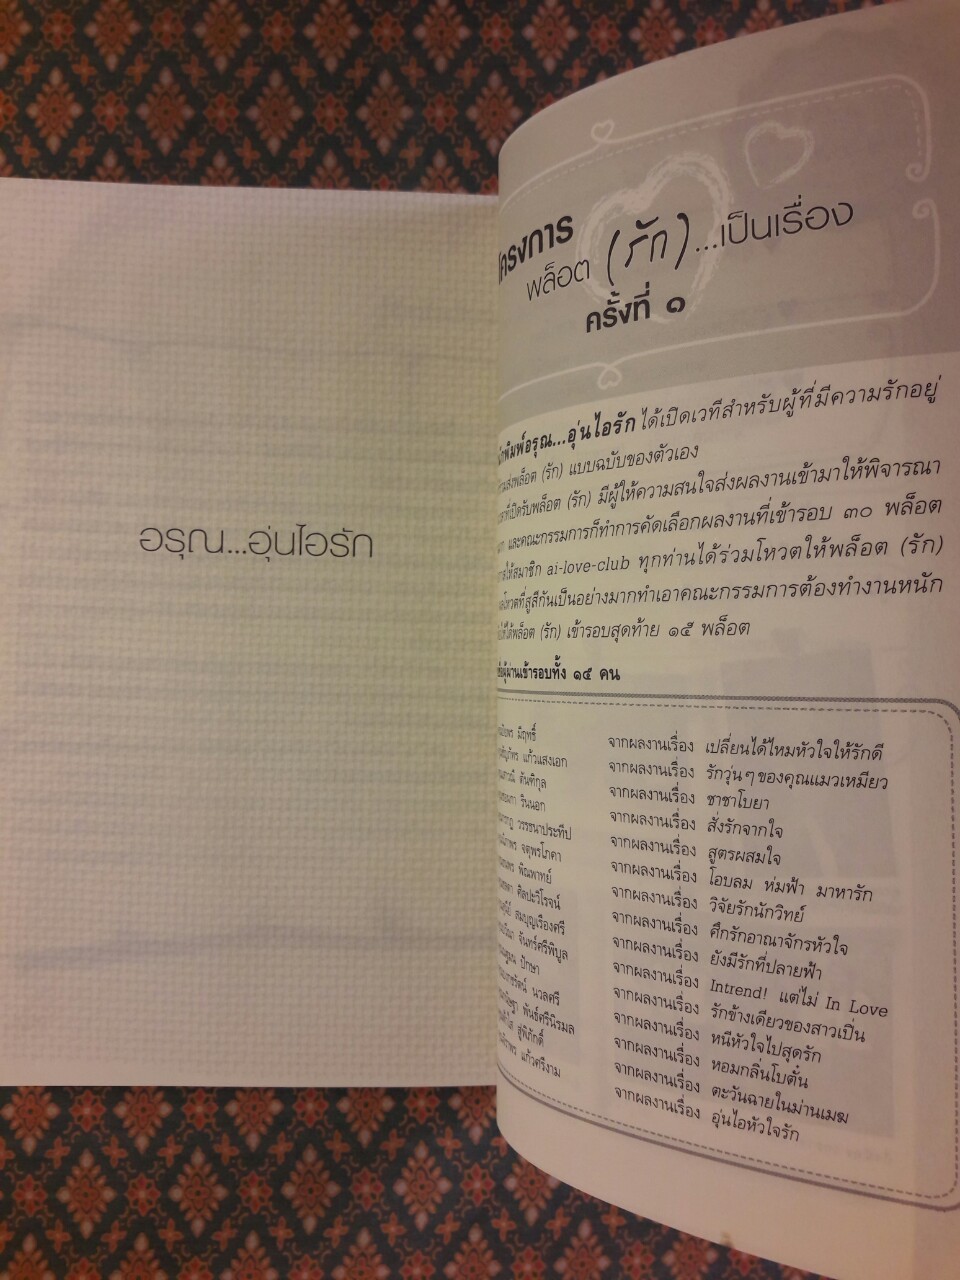 อรุณ...อุ่นไอรัก
โครงการ
พล็อต (รัก)...เป็นเรื่อง
ครั้งที่ ๑
อรุณ...อุ่นไอรัก ได้เปิดเวทีสำหรับผู้ที่มีความรักอยู่
พล็อต (รัก) แบบฉบับของตัวเอง
ที่เปิดรับพล็อต (รัก) มีผู้ให้ความสนใจส่งผลงานเข้ามาให้พิจารณา
และคณะกรรมการก็ทำการคัดเลือกผลงานที่เข้ารอบ ๓๐ พล็อต
ให้สมาชิก ai-love-club ทุกท่านได้ร่วมโหวตให้พล็อต (รัก)
โหวตที่สูสีกันเป็นอย่างมากทำเอาคณะกรรมการต้องทำงานหนัก
ได้พล็อต (รัก) เข้ารอบสุดท้าย ๑๕ พล็อต
ผู้ผ่านเข้ารอบทั้ง ๑๕ คน
มีฤทธิ์ จากผลงานเรื่อง เปลี่ยนได้ไหมหัวใจให้รักดี
แก้วแสงเอก จากผลงานเรื่อง รักวุ่นๆ ของคุณแมวเหมียว
ตันฑิกุล จากผลงานเรื่อง ซาซาโบยา
รินนอก จากผลงานเรื่อง สั่งรักจากใจ
วรรธนาประทีป จากผลงานเรื่อง สูตรผสมใจ
จตุพรโภคา จากผลงานเรื่อง โอบลม ห่มฟ้า มาหารัก
พิณพาทย์ จากผลงานเรื่อง วิจัยรักนักวิทย์
ศิลปะวิโรจน์ จากผลงานเรื่อง ศึกรักอาณาจักรหัวใจ
สมบุญเรืองศรี จากผลงานเรื่อง ยังมีรักที่ปลายฟ้า
จันทร์ศรีพิบูล จากผลงานเรื่อง Intrend! แต่ไม่ In Love
ปักษา จากผลงานเรื่อง รักข้างเดียวของสาวเปิ่น
นวลศรี จากผลงานเรื่อง หนีหัวใจไปสุดรัก
พันธ์ศรีนิรมล จากผลงานเรื่อง หอมกลิ่นโบตั๋น
สู่พิภักดิ์ จากผลงานเรื่อง ตะวันฉายในม่านเมฆ
แก้วศรีงาม จากผลงานเรื่อง อุ่นไอหัวใจรัก